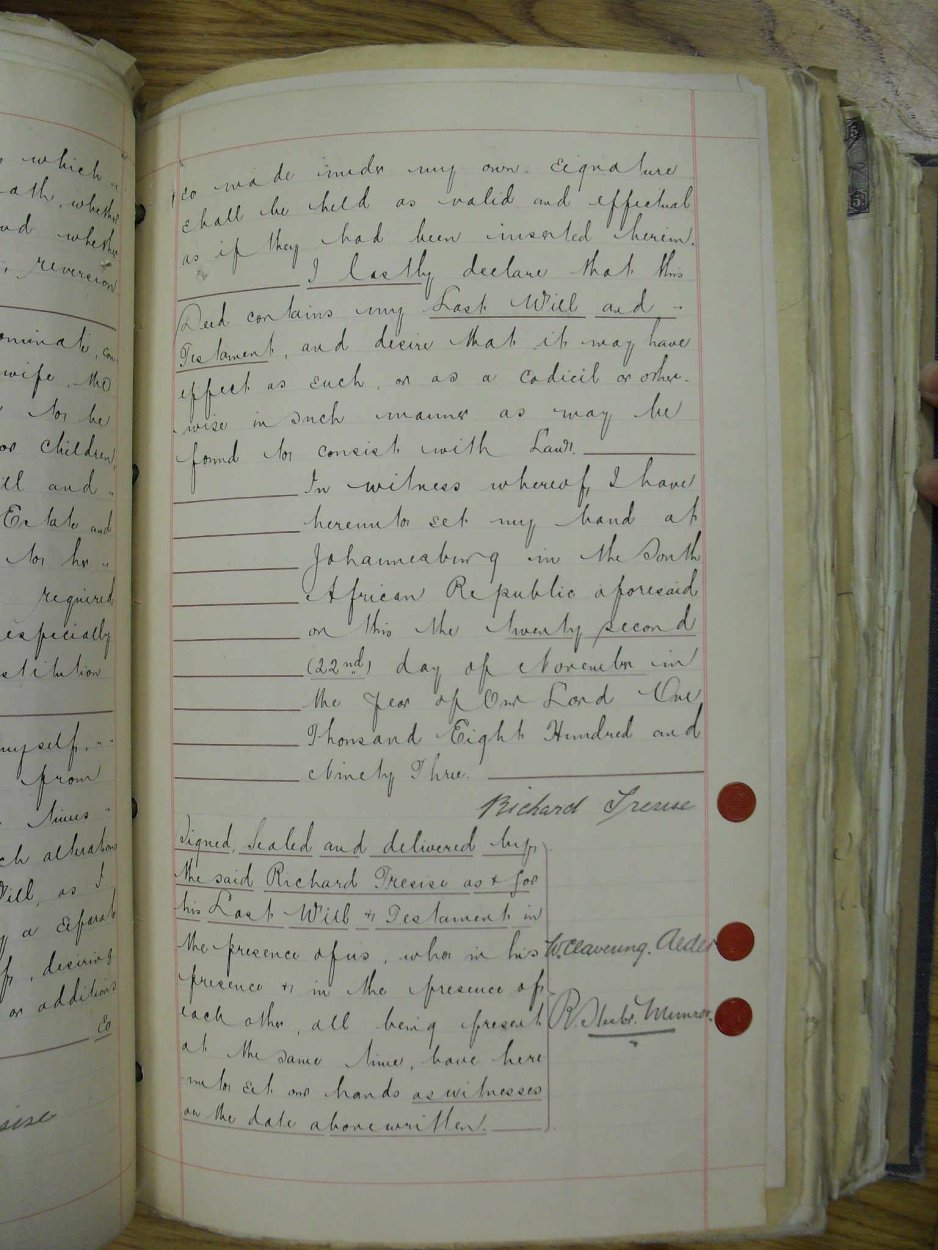 s which "
ath, whether
nd whether
, reversion
ominate, con
wife, the
to be
or children,
ill and "
Estate and
to her "
required
especially
stitution
myself, "
from
times "
ch alterations
Will, as I
a separate
, desiring
or additions
So
sise
so made under my own signature
shall be held as valid and effectual
as if they had been inserted herein.
I lastly declare that this
Deed contains my Last Will and "
Testament, and desire that it may have
effect as such, or as a codicil or other-
wise in such manner as may be
found to consist with Law.
In witness whereof, I have
hereunto set my hand at
Johannesburg in the South
African Republic aforesaid
on this the twenty second
(22nd) day of November in
the Year of Our Lord One
Thousand Eight Hundred and
Ninety Three.
Richard Tresise
Signed, Sealed and delivered by
the said Richard Tresise as & for
his Last Will & Testament in
the presence of us, who in his
presence & in the presence of
each other, all being present
at the same time, have here
unto set our hands as witnesses
on the date above written.
W. Clavering. Alder
R. Munro.
5
5